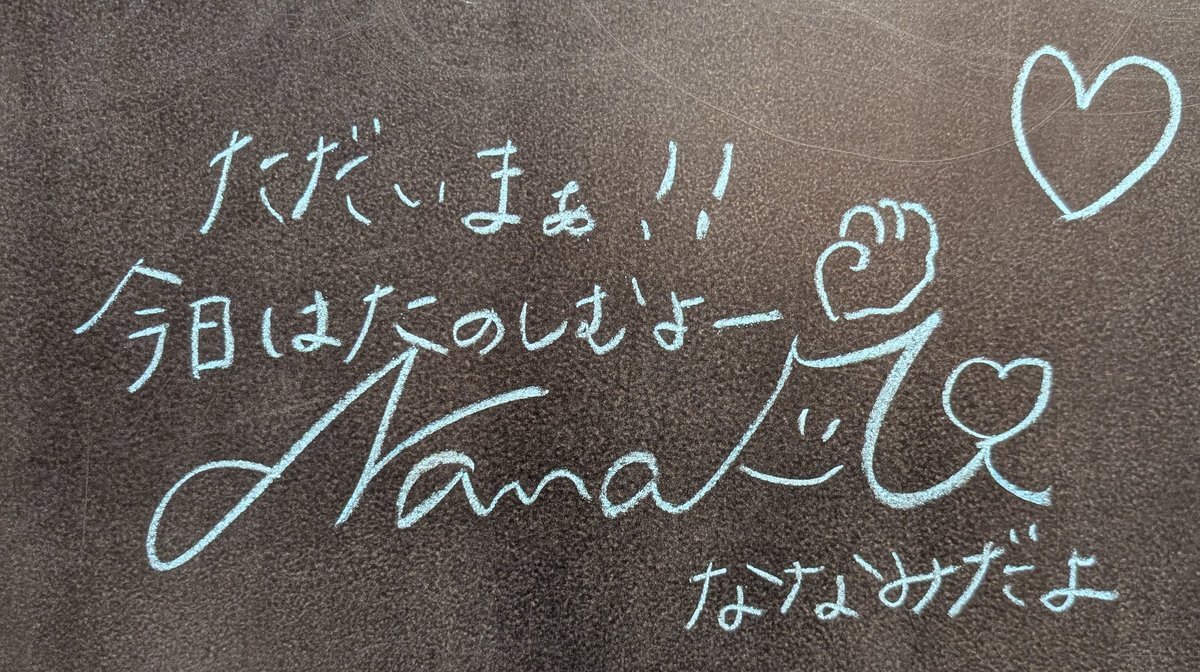 ただいまぁ!!
今日はたのしむよー
Nana
ななみだよ